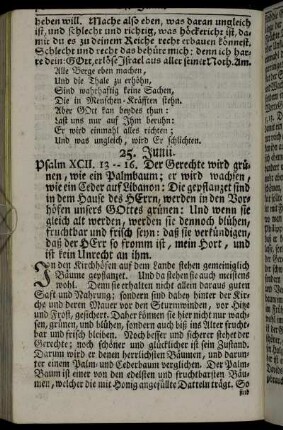 heben will. Mache also eben, was daran ungleich
ist, und schlecht und richtig, was höckericht ist, da-
mit du es zu deinem Reiche recht erbauen könnest.
Schlecht und recht das behüte mich; denn ich har-
re dein: GOtt, erlöse Israel aus aller seiner Noth. Am.
Alle Berge eben machen,
Und die Thale zu erhöhn,
Sind wahrhaftig keine Sachen,
Die in Menschen-Kräfften stehn.
Aber GOtt kan beydes thun:
Last uns nur auf Ihm beruhn:
Er wird einmahl alles richten;
Und was ungleich, wird Er schlichten.
25. Junii.
Psalm XCII. 13--16. Der Gerechte wird grü-
nen, wie ein Palmbaum; er wird wachsen,
wie ein Ceder auf Libanon: Die gepflanzet sind
in dem Hause des HErrn, werden in den Vor-
höfen unsers GOttes grünen: Und wenn sie
gleich alt werden, werden sie dennoch blühen,
fruchtbar und frisch seyn: daß sie verkündigen,
daß der HErr so fromm ist, mein Hort, und
ist kein Unrecht an ihm.
In den Kirchhöfen auf dem Lande stehen gemeiniglich
Bäume gepflanzet. Und da stehen sie auch meistens
wohl. Denn sie erhalten nicht allein daraus guten
Saft und Nahrung; sondern sind dahey hinter der Kir-
che und deren Mauer vor den Sturmwinden, vor Hitze
und Frost, gesichert. Daher können sie hier nicht nur wach-
sen, grünen, und blühen, sondern auch bis ins Alter frucht-
bar und frisch bleiben. Noch besser und sicherer stehet der
Gerechte; noch schöner und glücklicher ist sein Zustand.
Darum wird er denen herrlichsten Bäumen, und darun-
ter einem Palm- und Cederbaum verglichen. Der Palm-
Baum ist einer von den edelsten und fruchtbarsten Bäu-
men, welcher die mit Honig angefüllte Datteln trägt. So